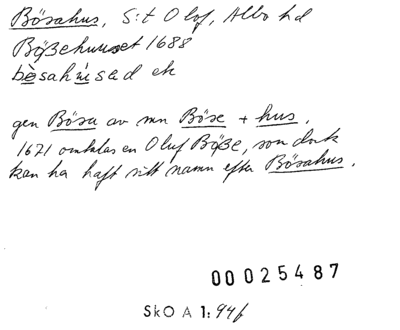 Bösahus, S:t Olof, Albo hd
Bößehuuset 1688
bòsahúsəd ek
gen Bösa av mn Böse + hus.
1671 omtalas en Oluf Böße, som dock
kan ha haft sitt namn efter Bösahus.
00025487
SkO A 1:94f